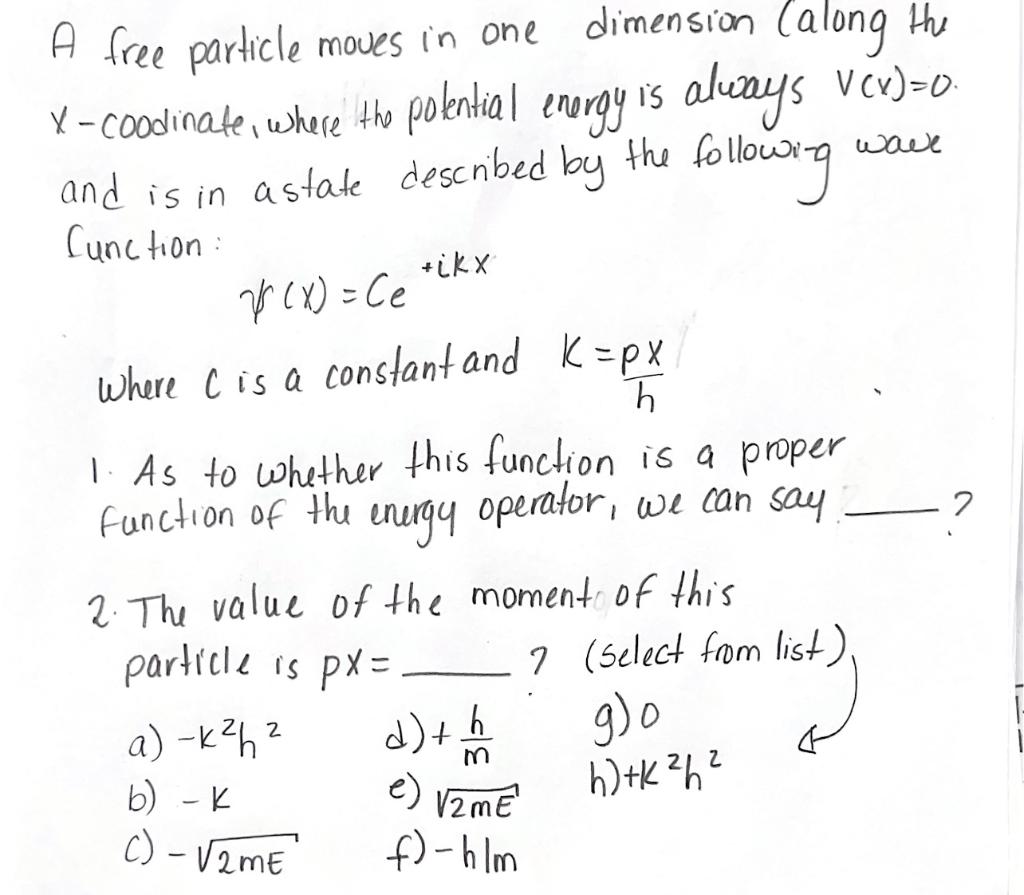 A free particle moves in one dimension (along the
X-coodinate, where the potential energy is always V(x)=0.
and is in a state described by the following wave
function:
ψ(x) = Ce^+ikx
where C is a constant and K = px/h
1. As to whether this function is a proper
function of the energy operator, we can say ____ ?
2. The value of the moment of this
particle is px = ____ ? (select from list)
a) -k²h² d) + h/m g) 0
b) - K e) √2mE h) +k²h²
c) - √2mE f) - h/m